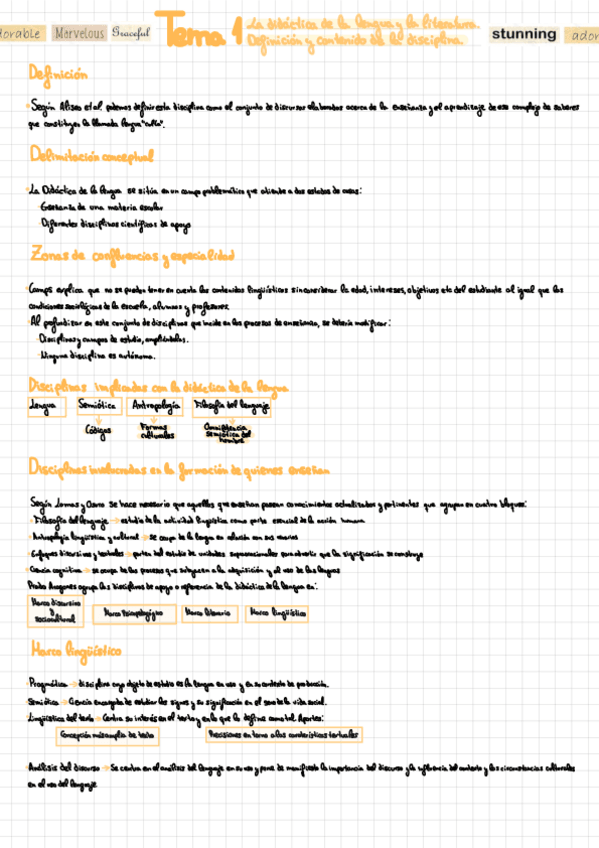 adorable Marvelous Graceful Tema 1 La didáctica de la lengua y la literatura. stunning ador
Definición y contenido de la disciplina.
Definición
Según Aliseo et al. podemos definir esta disciplina como el conjunto de discursos elaborados acerca de la enseñanza y el aprendizaje de ese complejo de saberes
que constituyen la llamada lengua "culta".
Delimitación conceptual
La Didáctica de la lengua se sitúa en un campo problemático que atiende a dos estados de cosas:
Enseñanza de una materia escolar
Diferentes disciplinas científicas de apoyo
Zonas de confluencias y especialidad
Camps explica que no se pueden tener en cuenta los contenidos lingüísticos sin considerar la edad, intereses, objetivos etc del estudiante al igual que las
condiciones sociológicas de la escuela, alumnos y profesores.
Al profundizar en este conjunto de disciplinas que incide en los procesos de enseñanza, se debería modificar:
Disciplinas y campos de estudio, ampliándolos.
Ninguna disciplina es autónoma.
Disciplinas implicadas con la didáctica de la lengua
Lengua Semiótica Antropología Filosofía del lenguaje
Códigos Formas culturales semiótica del hombre
Disciplinas involucradas en la formación de quienes enseñan
Según Lomas y Osoro se hace necesario que aquellos que enseñan posean conocimientos actualizados y pertinentes que agrupan en cuatro bloques:
Filosofía del lenguaje → estudio de la actividad lingüística como parte esencial de la acción humana
Antropología lingüística y cultural → se ocupa de la lengua en relación con sus usuarios
Enfoques discursivos y textuales → parten del estudio de unidades supraoracionales para advertir que la significación se construye
Ciencia cognitiva → se ocupa de los procesos que subyacen a la adquisición y el uso de las lenguas
Prado Aragonés agrupa las disciplinas de apoyo o referencia de la didáctica de la lengua en:
Marco discursivo y sociocultural Marco Psicopedagógico Marco literario Marco lingüístico
Marco lingüístico
Pragmática → disciplina cuyo objeto de estudio es la lengua en uso y en su contexto de producción.
Semiótica → Ciencia encargada de estudiar los signos y su significación en el seno de la vida social.
Lingüística del texto → Centra su interés en el texto y en lo que lo define como tal. Aportes:
Concepción más amplia de texto Precisiones en torno a las características textuales
Análisis del discurso → Se centra en el análisis del lenguaje en su uso y pone de manifiesto la importancia del discurso y la influencia del contexto y las circunstancias culturales
en el uso del lenguaje